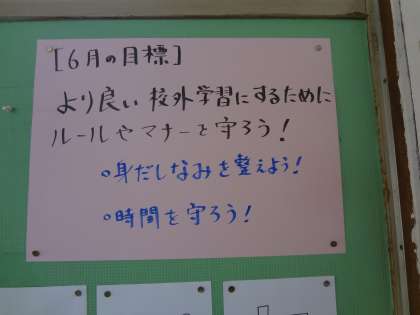 [6月の目標]
より良い校外学習にするために
ルールやマナーを守ろう!
○身だしなみを整えよう!
○時間を守ろう!